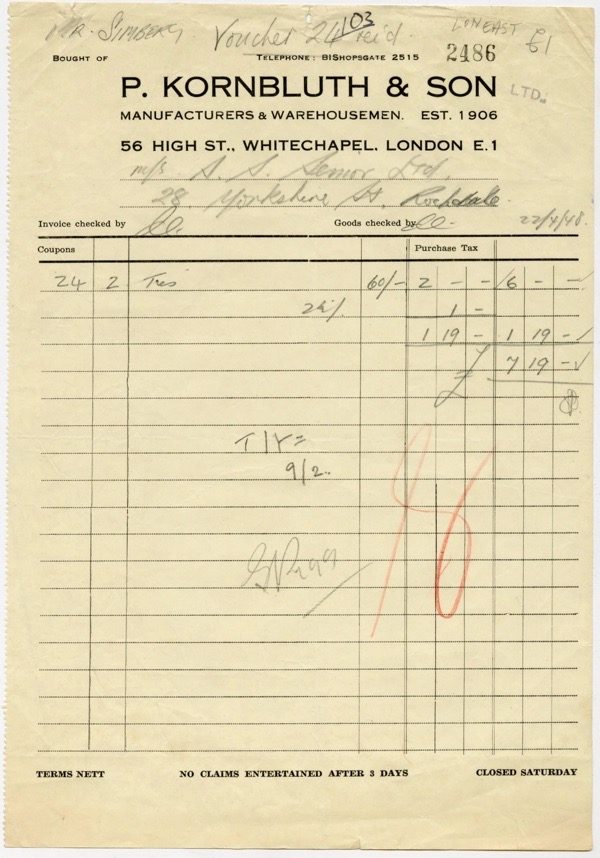 Mr. Simberg Voucher 24 rec'd. 103 LON EAST £1
BOUGHT OF TELEPHONE: BISHOPSGATE 2515 2486
P. KORNBLUTH & SON LTD.
MANUFACTURERS & WAREHOUSEMEN. EST. 1906
56 HIGH ST., WHITECHAPEL. LONDON E.1
m/s S. S. Senior Ltd.
28 Yorkshire St. Rochdale
Invoice checked by Goods checked by 22/4/48.
Coupons Purchase Tax
24 2 60/- 2 - - 6 - -
1 -
1 19 - 1 19 -
£ 7 19 -
9/2.
TERMS NETT NO CLAIMS ENTERTAINED AFTER 3 DAYS CLOSED SATURDAY